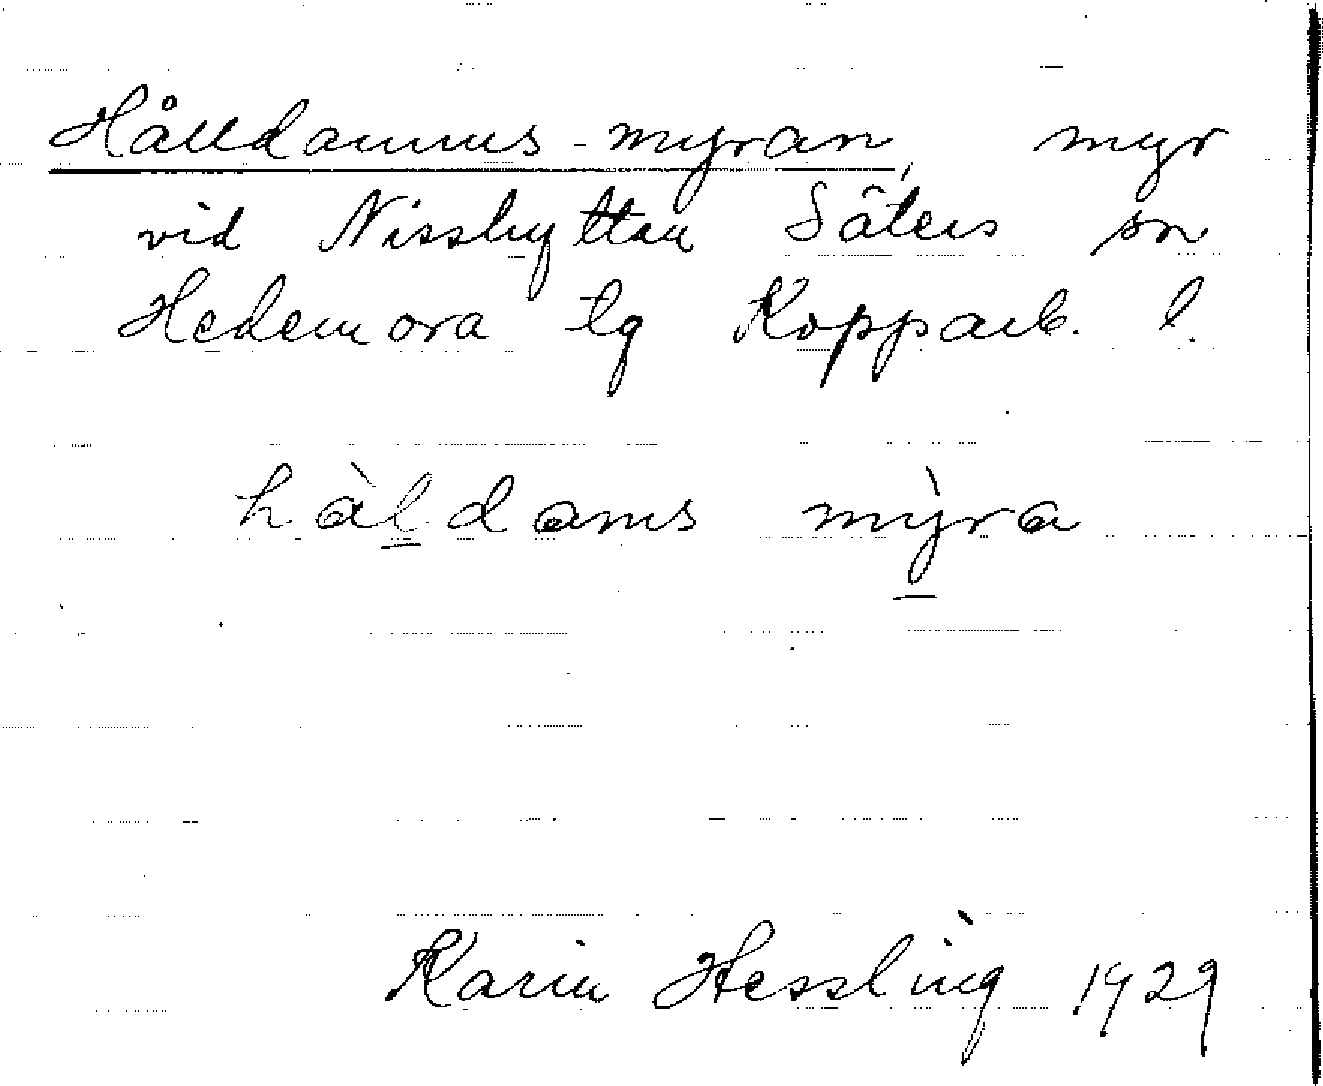 Hålldammsmyran, myr
vid Nisshyttan Säters sn
Hedemora tg Kopparb. l.
hàldams mỳra
Karin Hessling 1929